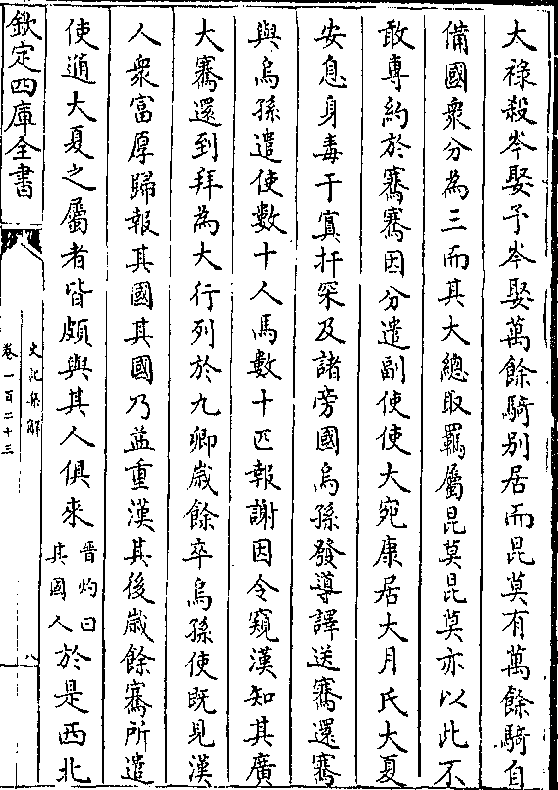 大祿殺岑娶予岑娶萬餘騎别居而昆莫有萬餘騎自
備國衆分為三而其大總取羈屬昆莫昆莫亦以此不
敢專約於騫騫因分遣副使使大宛康居大月氏大夏
安息身毒于窴扜罙及諸旁國烏孫發導譯送騫還騫
與烏孫遣使數十人馬數十匹報謝因令窺漢知其廣
大騫還到拜為大行列於九卿歲餘卒烏孫使既見漢
人衆富厚歸報其國其國乃益重漢其後歲餘騫所遣
使通大夏之屬者皆頗與其人俱來晉灼曰其國人於是西北
欽定四庫全書
史記集解
卷一百二十三
八